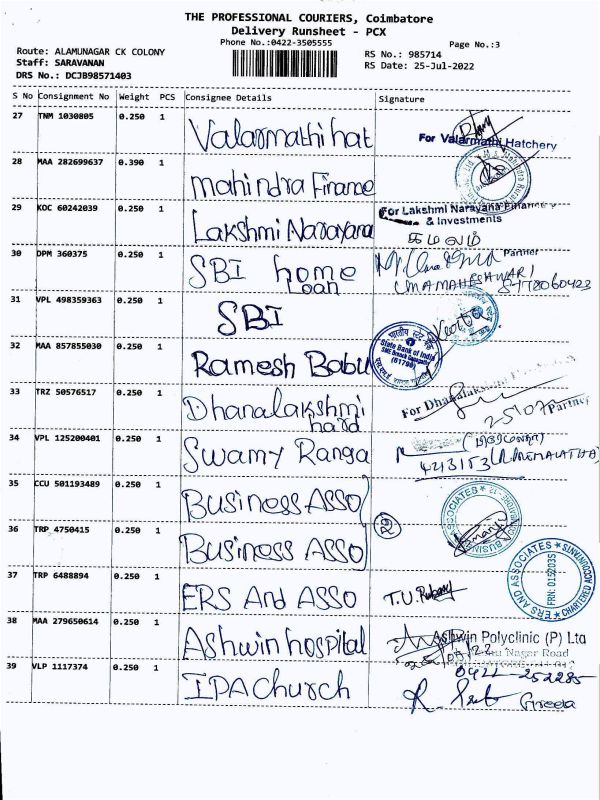 THE PROFESSIONAL COURIERS, Coimbatore
Delivery Runsheet - PCX
Phone No.:0422-3505555
Page No.:3
Route: ALAMUNAGAR CK COLONY
Staff: SARAVANAN
DRS No.: DCJB98571403
RS No.: 985714
RS Date: 25-Jul-2022
S No Consignment No Weight PCS Consignee Details Signature
27 TNM 1030805 0.250 1 Valarmathi hat
For Valarmathi Hatchery
28 MAA 282699637 0.390 1 mahindra Finance
29 KOC 60242039 0.250 1 Lakshmi Narayana
For Lakshmi Narayana Finance
& Investments
30 DPM 360375 0.250 1 SBI home Loan
Partner
UMAMAHESWARI
31 VPL 498359363 0.250 1 SBI
32 MAA 857855030 0.250 1 Ramesh Babu
State Bank of India
33 TRZ 50576517 0.250 1 Dhanalakshmi hard
For Dhanalakshmi
Partner
34 VPL 125200401 0.250 1 Swamy Ranga
4213153 (R.PREMALATHA)
35 CCU 501193489 0.250 1 Business Asso
BUSINESS ASSOCIATES
36 TRP 4750415 0.250 1 Business Asso
37 TRP 6488894 0.250 1 ERS And Asso
ERS AND ASSOCIATES
CHARTERED ACCOUNTANTS
FRN: 015203S
38 MAA 279650614 0.250 1 Ashwin hospital
Ashwin Polyclinic (P) Ltd
Nagar Road
39 VLP 1117374 0.250 1 IPA Church
0422-252285
Greeda